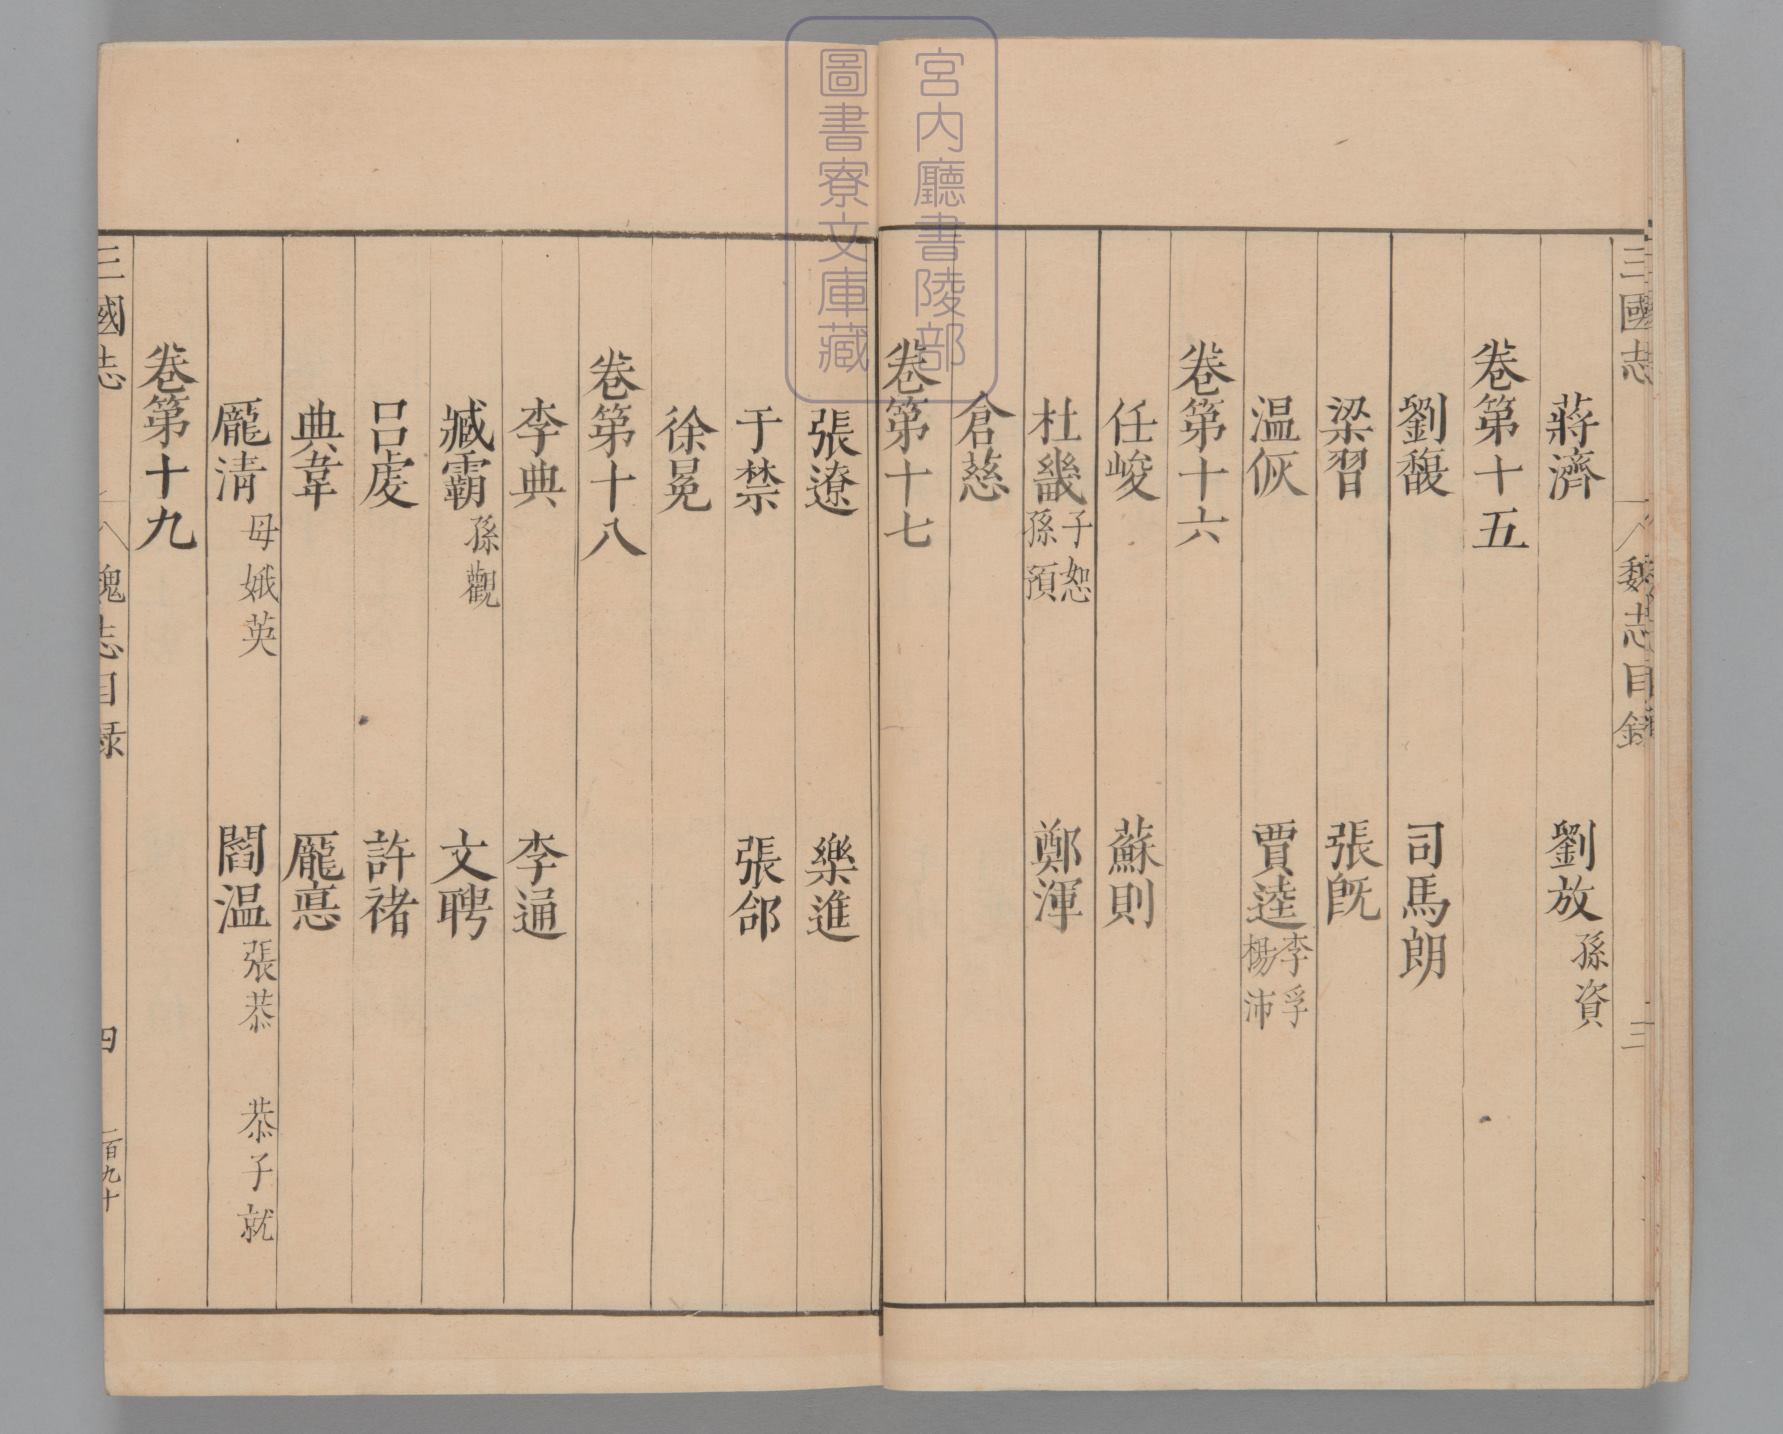 三國志 魏志目錄 三
蔣濟 劉放 孫資
卷第十五
劉馥 司馬朗
梁習 張旣
温恢 賈逵 李孚 楊沛
卷第十六
任峻 蘇則
杜畿 子恕 孫預 鄭渾
倉慈
卷第十七
張遼 樂進
于禁 張郃
徐晃
卷第十八
李典 李通
臧霸 孫觀 文聘
吕虔 許褚
典韋 龎悳
龎淯 母娥英 閻温 張恭 恭子就
卷第十九
三國志 魏志目録 四 一百九十
宮内廳書陵部
圖書寮文庫藏